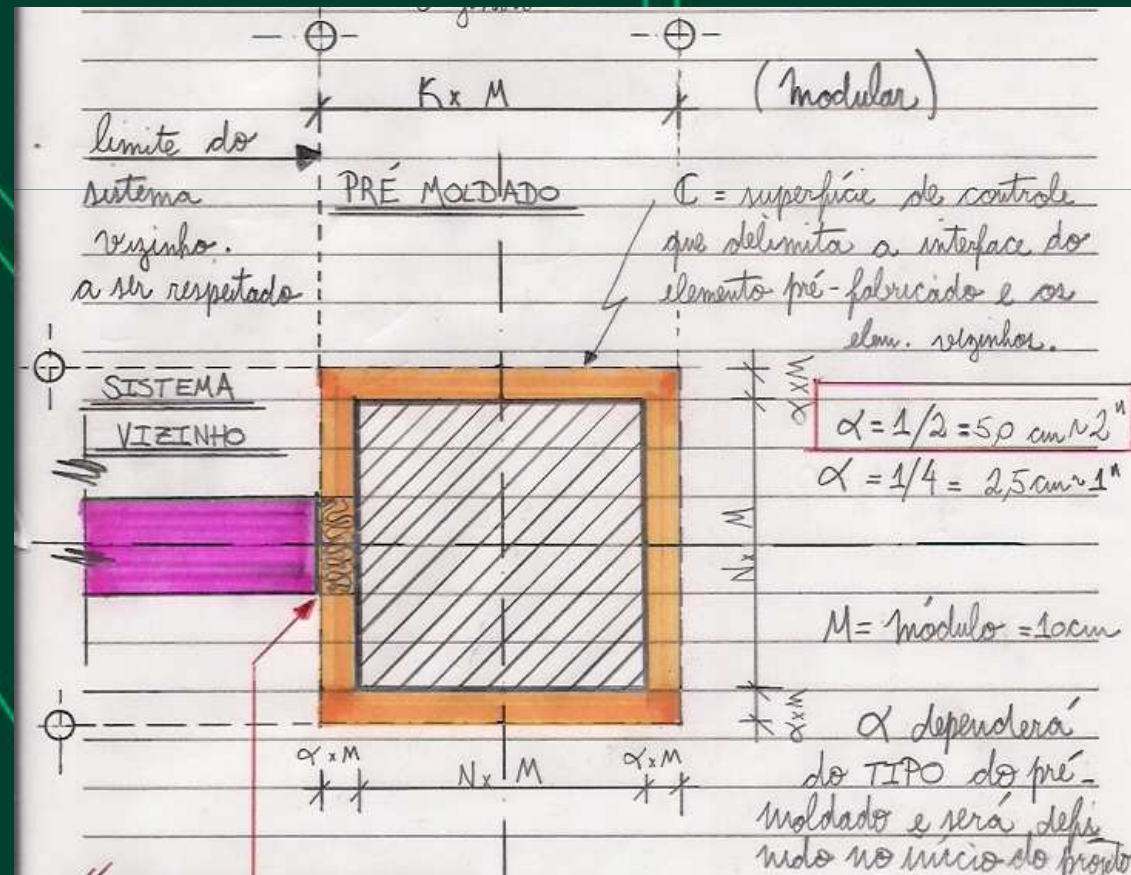 K x M
(Modular)
limite do
sistema
vizinho.
a ser respeitado
PRÉ MOLDADO
C = superfície de controle
que delimita a interface do
elemento pré-fabricado e os
elem. vizinhos.
SISTEMA
VIZINHO
α x M
α = 1/2 = 5,0 cm ~ 2"
α = 1/4 = 2,5 cm ~ 1"
N x M
M = módulo = 10cm
α x M
α dependerá
do TIPO do pré-
moldado e será defi
nido no início do projeto
α x M
N x M
α x M